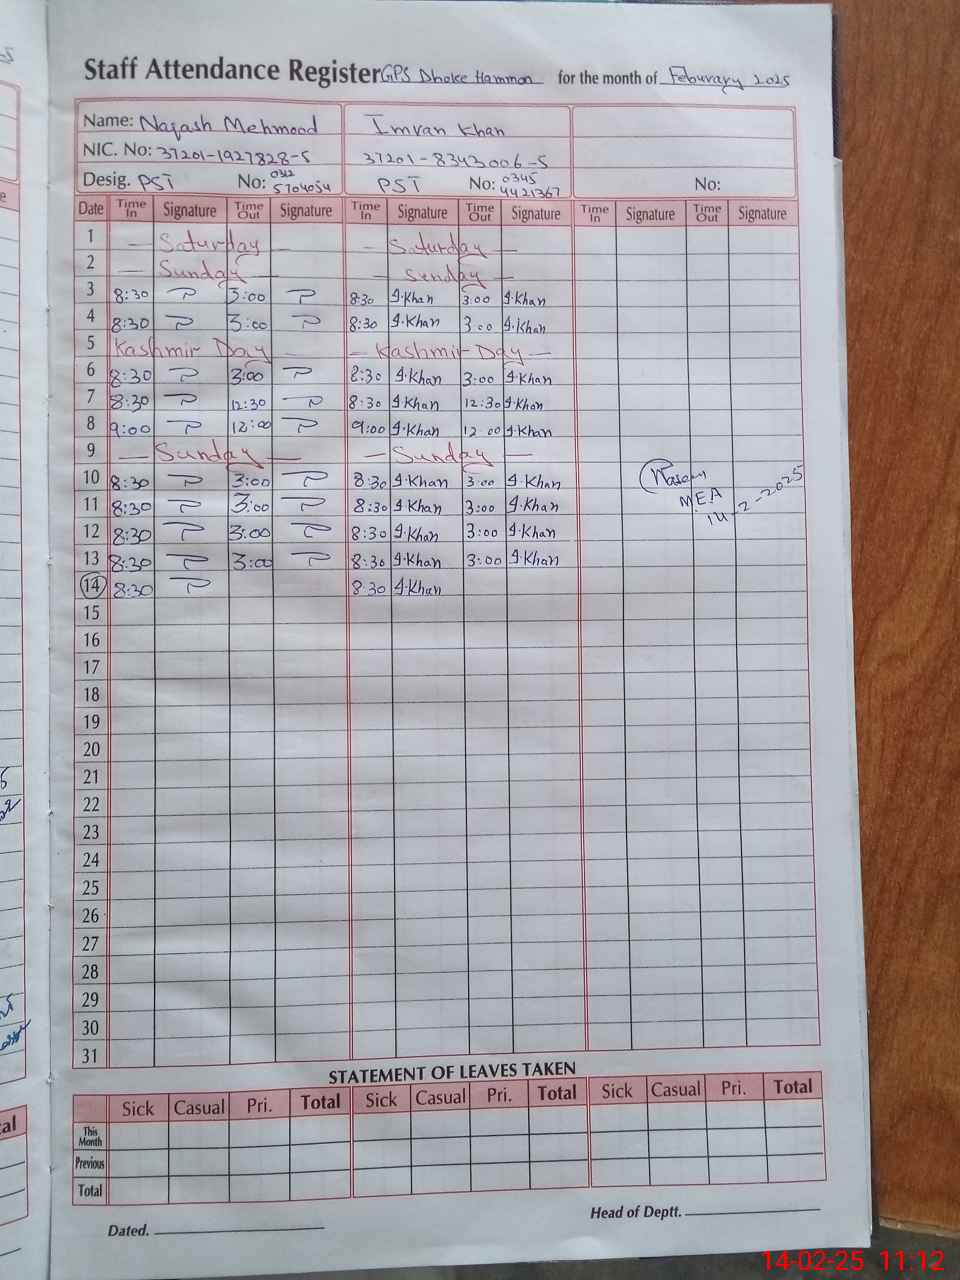 Staff Attendance Register GPS Dhoke Hammon for the month of Feburary 2025
Name: Naqash Mehmood Imran Khan
NIC. No: 37201-1927828-5 37201-8343006-5
Desig. PST No: 0312 5704054 PST No: 0345 4421367 No:
Date Time In Signature Time Out Signature Time In Signature Time Out Signature Time In Signature Time Out Signature
1 — Saturday — — Saturday —
2 — Sunday — — Sunday —
3 8:30 3:00 8:30 I.Khan 3:00 I.Khan
4 8:30 3:00 8:30 I.Khan 3:00 I.Khan
5 Kashmir Day — — Kashmir Day —
6 8:30 3:00 8:30 I.Khan 3:00 I.Khan
7 8:30 12:30 8:30 I.Khan 12:30 I.Khan
8 9:00 12:00 9:00 I.Khan 12:00 I.Khan
9 — Sunday — — Sunday —
10 8:30 3:00 8:30 I.Khan 3:00 I.Khan
MEA
11 8:30 3:00 8:30 I.Khan 3:00 I.Khan
14-2-2025
12 8:30 3:00 8:30 I.Khan 3:00 I.Khan
13 8:30 3:00 8:30 I.Khan 3:00 I.Khan
14 8:30 8:30 I.Khan
15
16
17
18
19
20
21
22
23
24
25
26
27
28
29
30
31
STATEMENT OF LEAVES TAKEN
Sick Casual Pri. Total Sick Casual Pri. Total Sick Casual Pri. Total
This Month
Previous
Total
Dated. Head of Deptt.
14-02-25 11:12